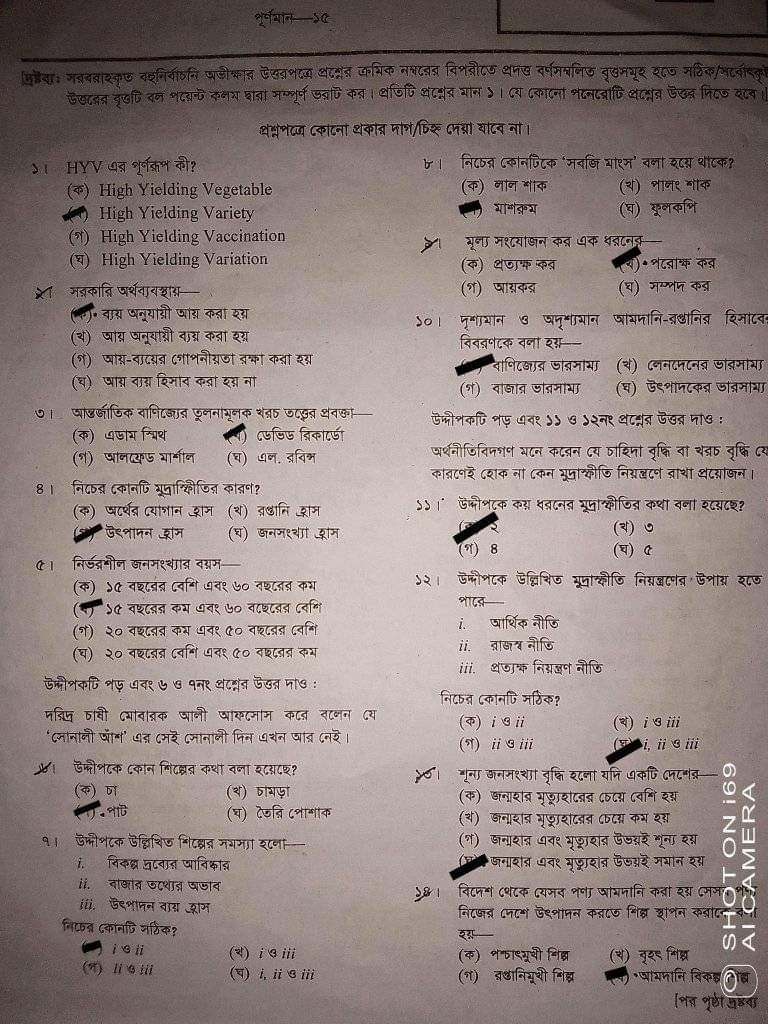 পূর্ণমান—১৫
দ্রষ্টব্য: সরবরাহকৃত বহুনির্বাচনি অভীক্ষার উত্তরপত্রে প্রশ্নের ক্রমিক নম্বরের বিপরীতে প্রদত্ত বর্ণসম্বলিত বৃত্তসমূহ হতে সঠিক/সর্বোৎকৃষ্ট
উত্তরের বৃত্তটি বল পয়েন্ট কলম দ্বারা সম্পূর্ণ ভরাট কর। প্রতিটি প্রশ্নের মান ১। যে কোনো পনেরোটি প্রশ্নের উত্তর দিতে হবে।
প্রশ্নপত্রে কোনো প্রকার দাগ/চিহ্ন দেয়া যাবে না।
১। HYV এর পূর্ণরূপ কী?
(ক) High Yielding Vegetable
High Yielding Variety
(গ) High Yielding Vaccination
(ঘ) High Yielding Variation
২। সরকারি অর্থব্যবস্থায়—
ব্যয় অনুযায়ী আয় করা হয়
(খ) আয় অনুযায়ী ব্যয় করা হয়
(গ) আয়-ব্যয়ের গোপনীয়তা রক্ষা করা হয়
(ঘ) আয় ব্যয় হিসাব করা হয় না
৩। আন্তর্জাতিক বাণিজ্যের তুলনামূলক খরচ তত্ত্বের প্রবক্তা—
(ক) এডাম স্মিথ (খ) ডেভিড রিকার্ডো
(গ) আলফ্রেড মার্শাল (ঘ) এল. রবিন্স
৪। নিচের কোনটি মুদ্রাস্ফীতির কারণ?
(ক) অর্থের যোগান হ্রাস (খ) রপ্তানি হ্রাস
(গ) উৎপাদন হ্রাস (ঘ) জনসংখ্যা হ্রাস
৫। নির্ভরশীল জনসংখ্যার বয়স—
(ক) ১৫ বছরের বেশি এবং ৬০ বছরের কম
(খ) ১৫ বছরের কম এবং ৬০ বছেরের বেশি
(গ) ২০ বছরের কম এবং ৫০ বছরের বেশি
(ঘ) ২০ বছরের বেশি এবং ৫০ বছরের কম
উদ্দীপকটি পড় এবং ৬ ও ৭নং প্রশ্নের উত্তর দাও :
দরিদ্র চাষী মোবারক আলী আফসোস করে বলেন যে
'সোনালী আঁশ' এর সেই সোনালী দিন এখন আর নেই।
৬। উদ্দীপকে কোন শিল্পের কথা বলা হয়েছে?
(ক) চা (খ) চামড়া
পাট (ঘ) তৈরি পোশাক
৭। উদ্দীপকে উল্লিখিত শিল্পের সমস্যা হলো—
i. বিকল্প দ্রব্যের আবিষ্কার
ii. বাজার তথ্যের অভাব
iii. উৎপাদন ব্যয় হ্রাস
নিচের কোনটি সঠিক?
i ও ii (খ) i ও iii
(গ) ii ও iii (ঘ) i, ii ও iii
৮। নিচের কোনটিকে 'সবজি মাংস' বলা হয়ে থাকে?
(ক) লাল শাক (খ) পালং শাক
মাশরুম (ঘ) ফুলকপি
৯। মূল্য সংযোজন কর এক ধরনের—
(ক) প্রত্যক্ষ কর (খ) পরোক্ষ কর
(গ) আয়কর (ঘ) সম্পদ কর
১০। দৃশ্যমান ও অদৃশ্যমান আমদানি-রপ্তানির হিসাবের
বিবরণকে বলা হয়—
বাণিজ্যের ভারসাম্য (খ) লেনদেনের ভারসাম্য
(গ) বাজার ভারসাম্য (ঘ) উৎপাদকের ভারসাম্য
উদ্দীপকটি পড় এবং ১১ ও ১২নং প্রশ্নের উত্তর দাও :
অর্থনীতিবিদগণ মনে করেন যে চাহিদা বৃদ্ধি বা খরচ বৃদ্ধি যে
কারণেই হোক না কেন মুদ্রাস্ফীতি নিয়ন্ত্রণে রাখা প্রয়োজন।
১১। উদ্দীপকে কয় ধরনের মুদ্রাস্ফীতির কথা বলা হয়েছে?
(ক) ২ (খ) ৩
(গ) ৪ (ঘ) ৫
১২। উদ্দীপকে উল্লিখিত মুদ্রাস্ফীতি নিয়ন্ত্রণের উপায় হতে
পারে—
i. আর্থিক নীতি
ii. রাজস্ব নীতি
iii. প্রত্যক্ষ নিয়ন্ত্রণ নীতি
নিচের কোনটি সঠিক?
(ক) i ও ii (খ) i ও iii
(গ) ii ও iii (ঘ) i, ii ও iii
১৩। শূন্য জনসংখ্যা বৃদ্ধি হলো যদি একটি দেশের—
(ক) জন্মহার মৃত্যুহারের চেয়ে বেশি হয়
(খ) জন্মহার মৃত্যুহারের চেয়ে কম হয়
(গ) জন্মহার এবং মৃত্যুহার উভয়ই শূন্য হয়
(ঘ) জন্মহার এবং মৃত্যুহার উভয়ই সমান হয়
১৪। বিদেশ থেকে যেসব পণ্য আমদানি করা হয় সেসব পণ্য
নিজের দেশে উৎপাদন করতে শিল্প স্থাপন করাকে বলা
হয়—
(ক) পশ্চাৎমুখী শিল্প (খ) বৃহৎ শিল্প
(গ) রপ্তানিমুখী শিল্প (ঘ) আমদানি বিকল্প শিল্প
[পর পৃষ্ঠা দ্রষ্টব্য
SHOT ON i69
AI CAMERA